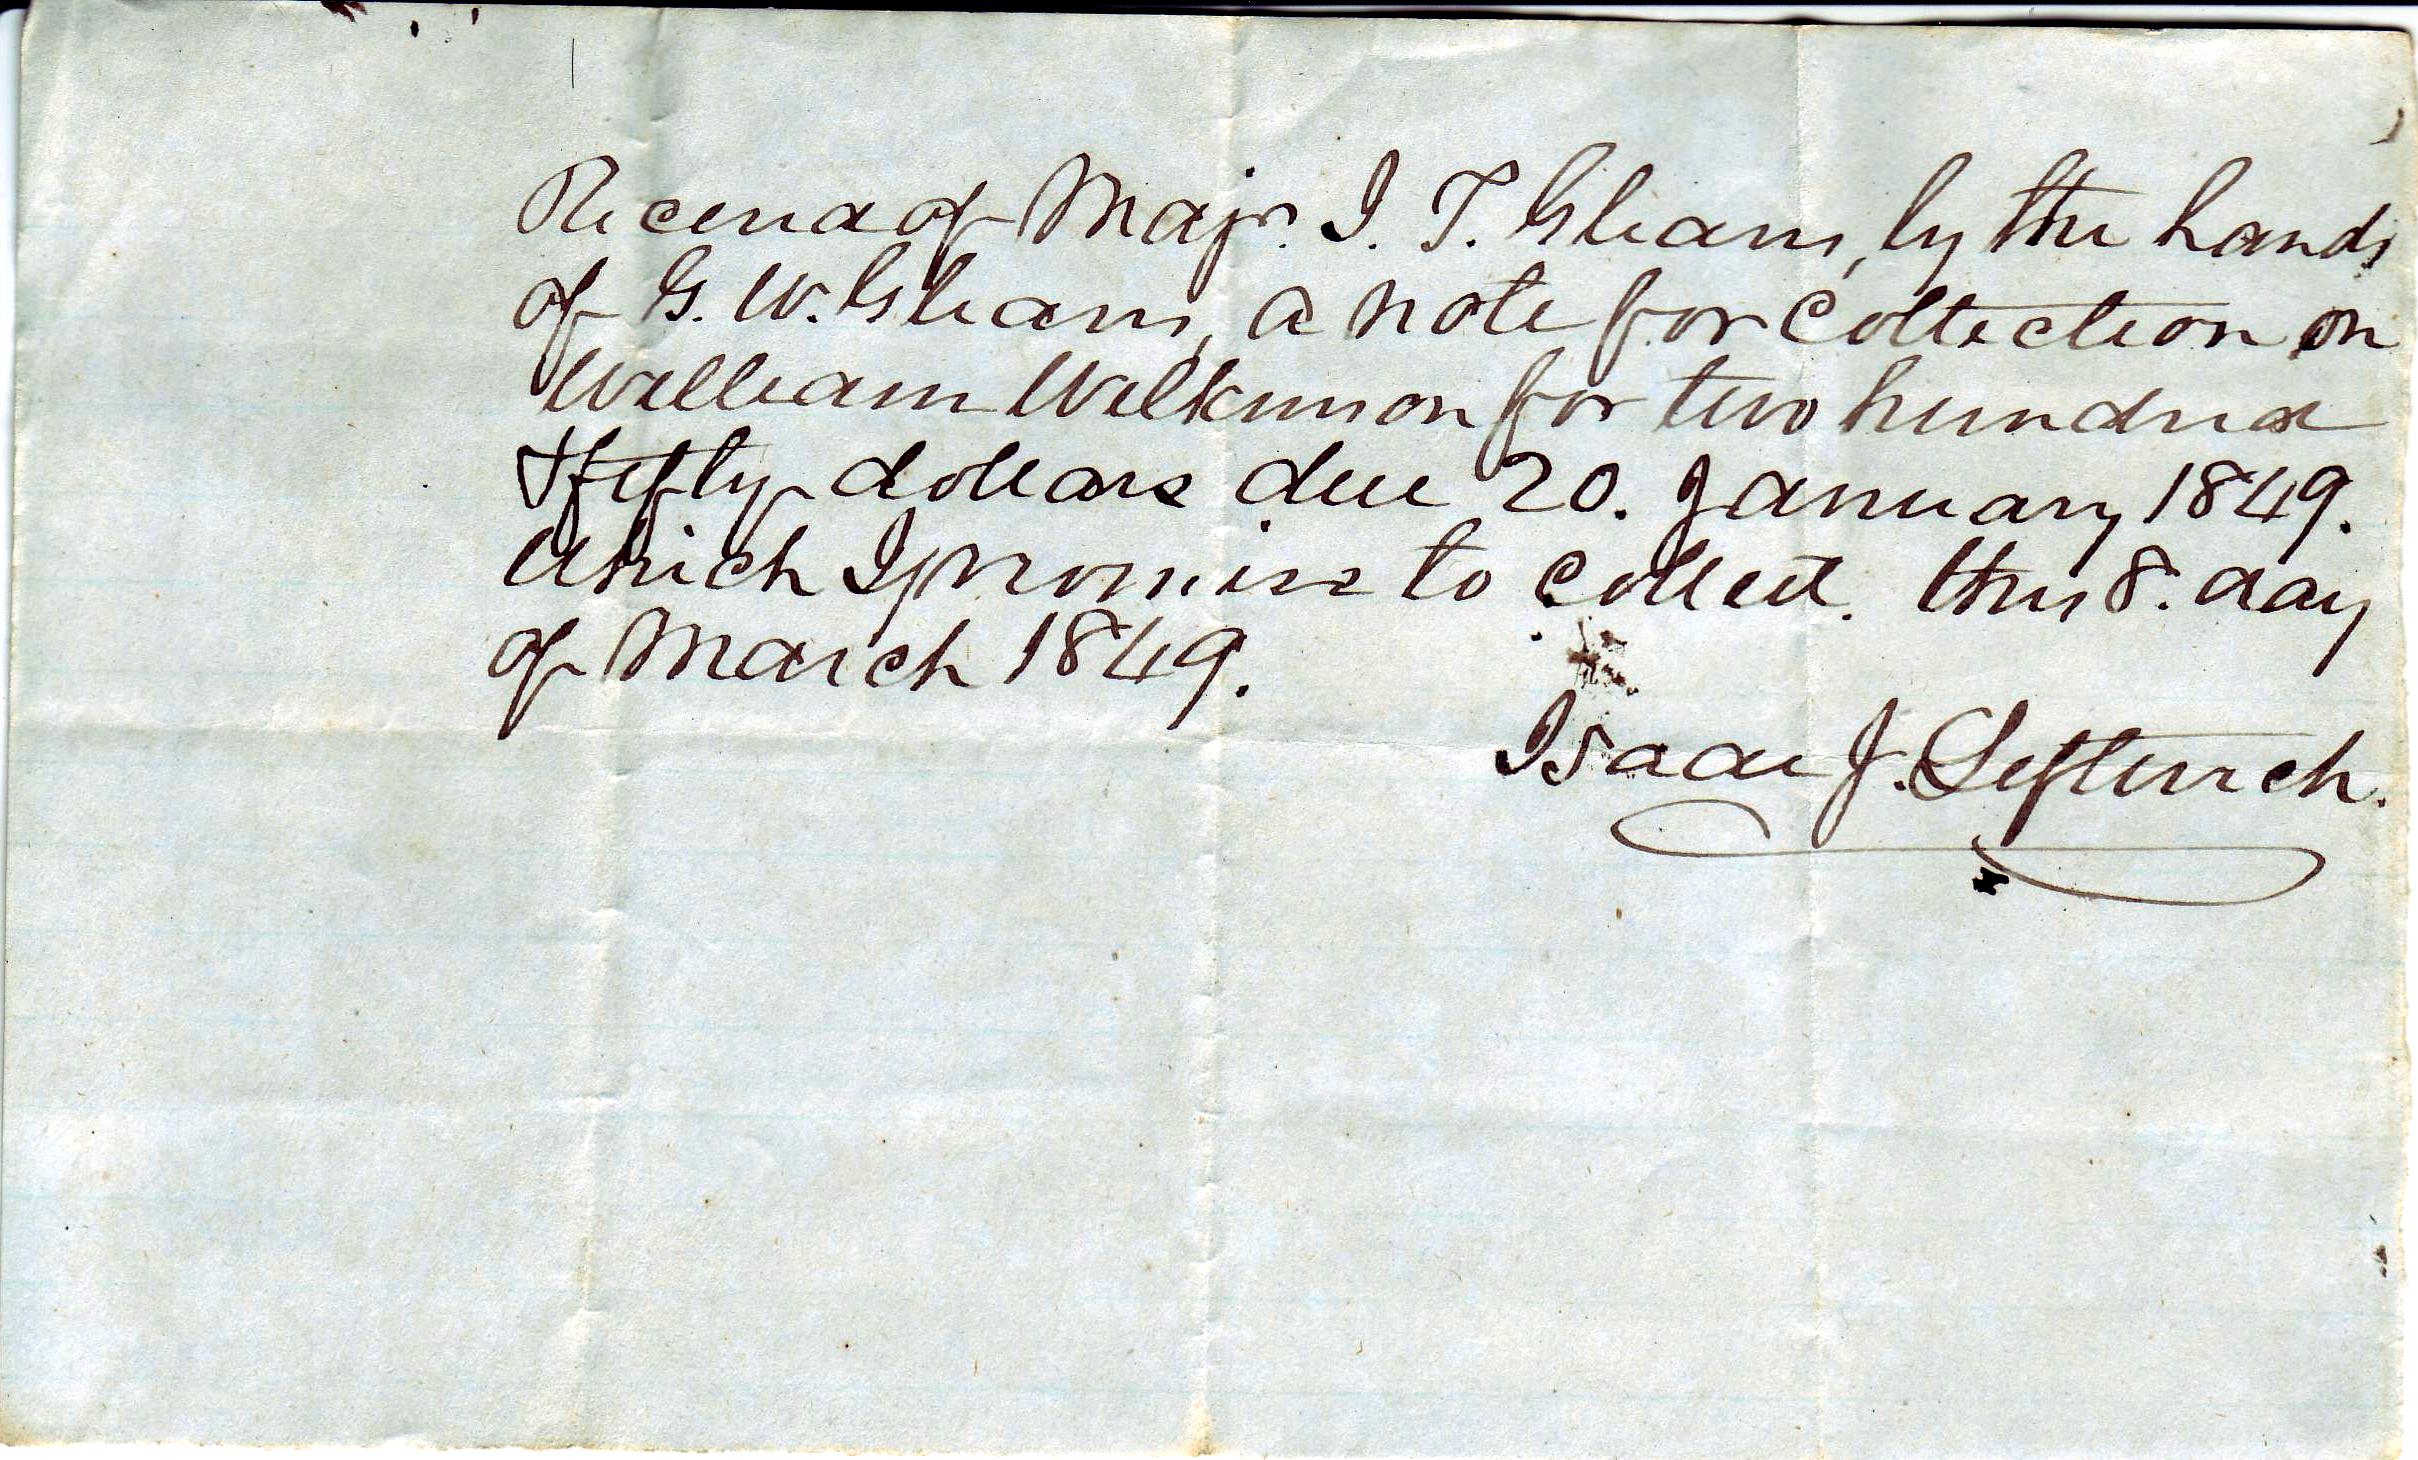 Received of Majr. I. T. Gleaves, by the hands
of G. W. Gleaves, a note for Collection on
William Wilkinson for two hundred
& fifty dollars due 20. January 1849.
Which I promise to collect. this 8. day
of March 1849.
Isaac J. Leftwich.